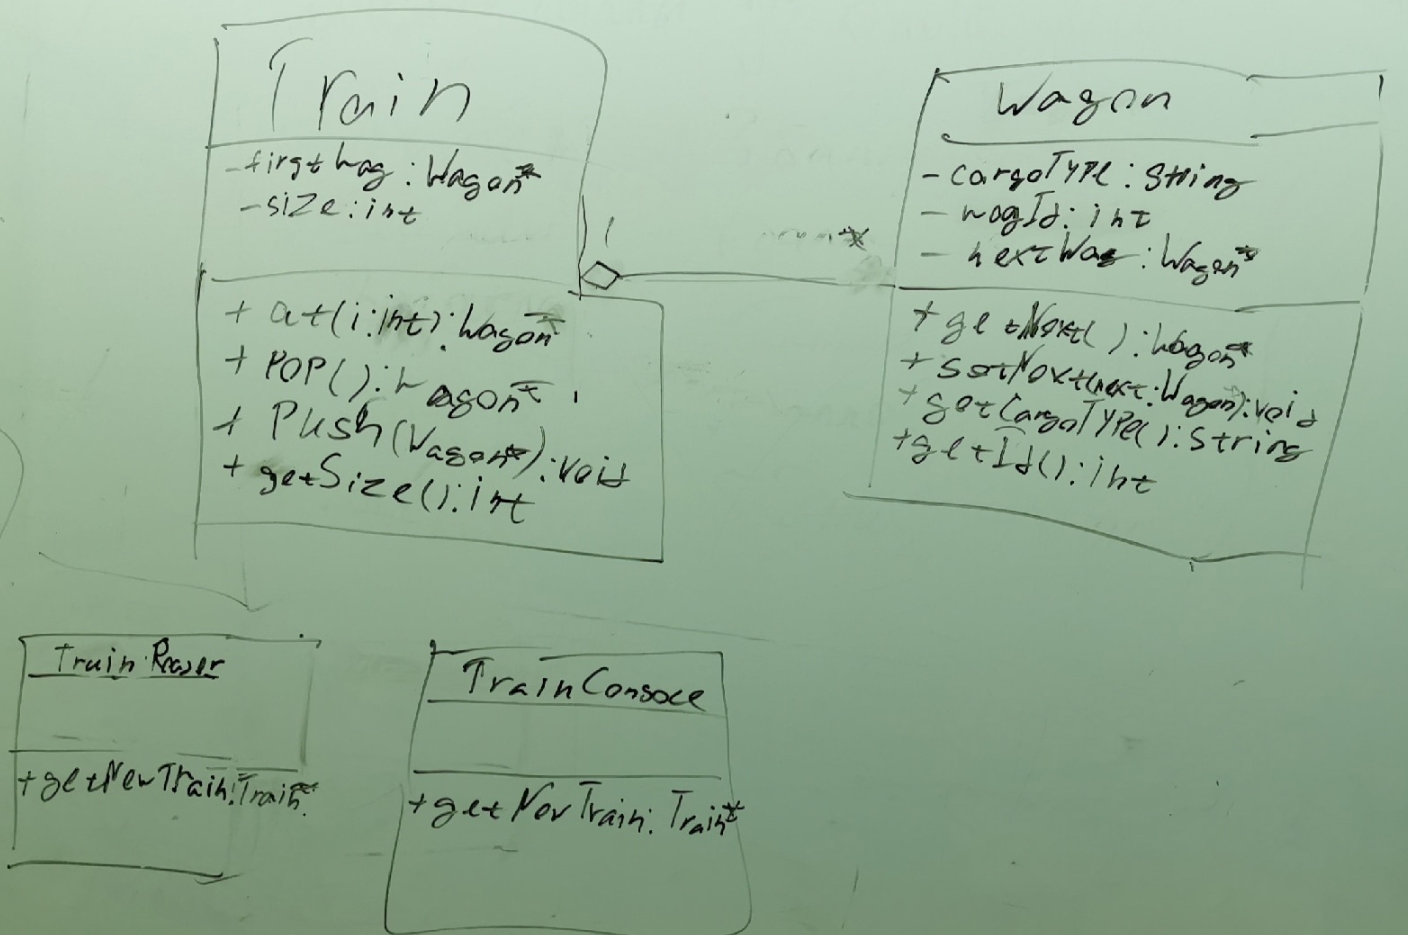 Train
-firstWag:Wagon*
-size:int
+ at(i:int):Wagon*
+ POP():Wagon*
+ Push(Wagon*):void
+ getSize():int
1
*
Wagon
-cargoTYPe:String
- wagId:int
- nextWag:Wagon*
+getNext():Wagon*
+setNext(next:Wagon):void
+getCargoTYPe():String
+getId():int
Train
+getNewTrain:Train*
TrainConsole
+getNewTrain:Train*